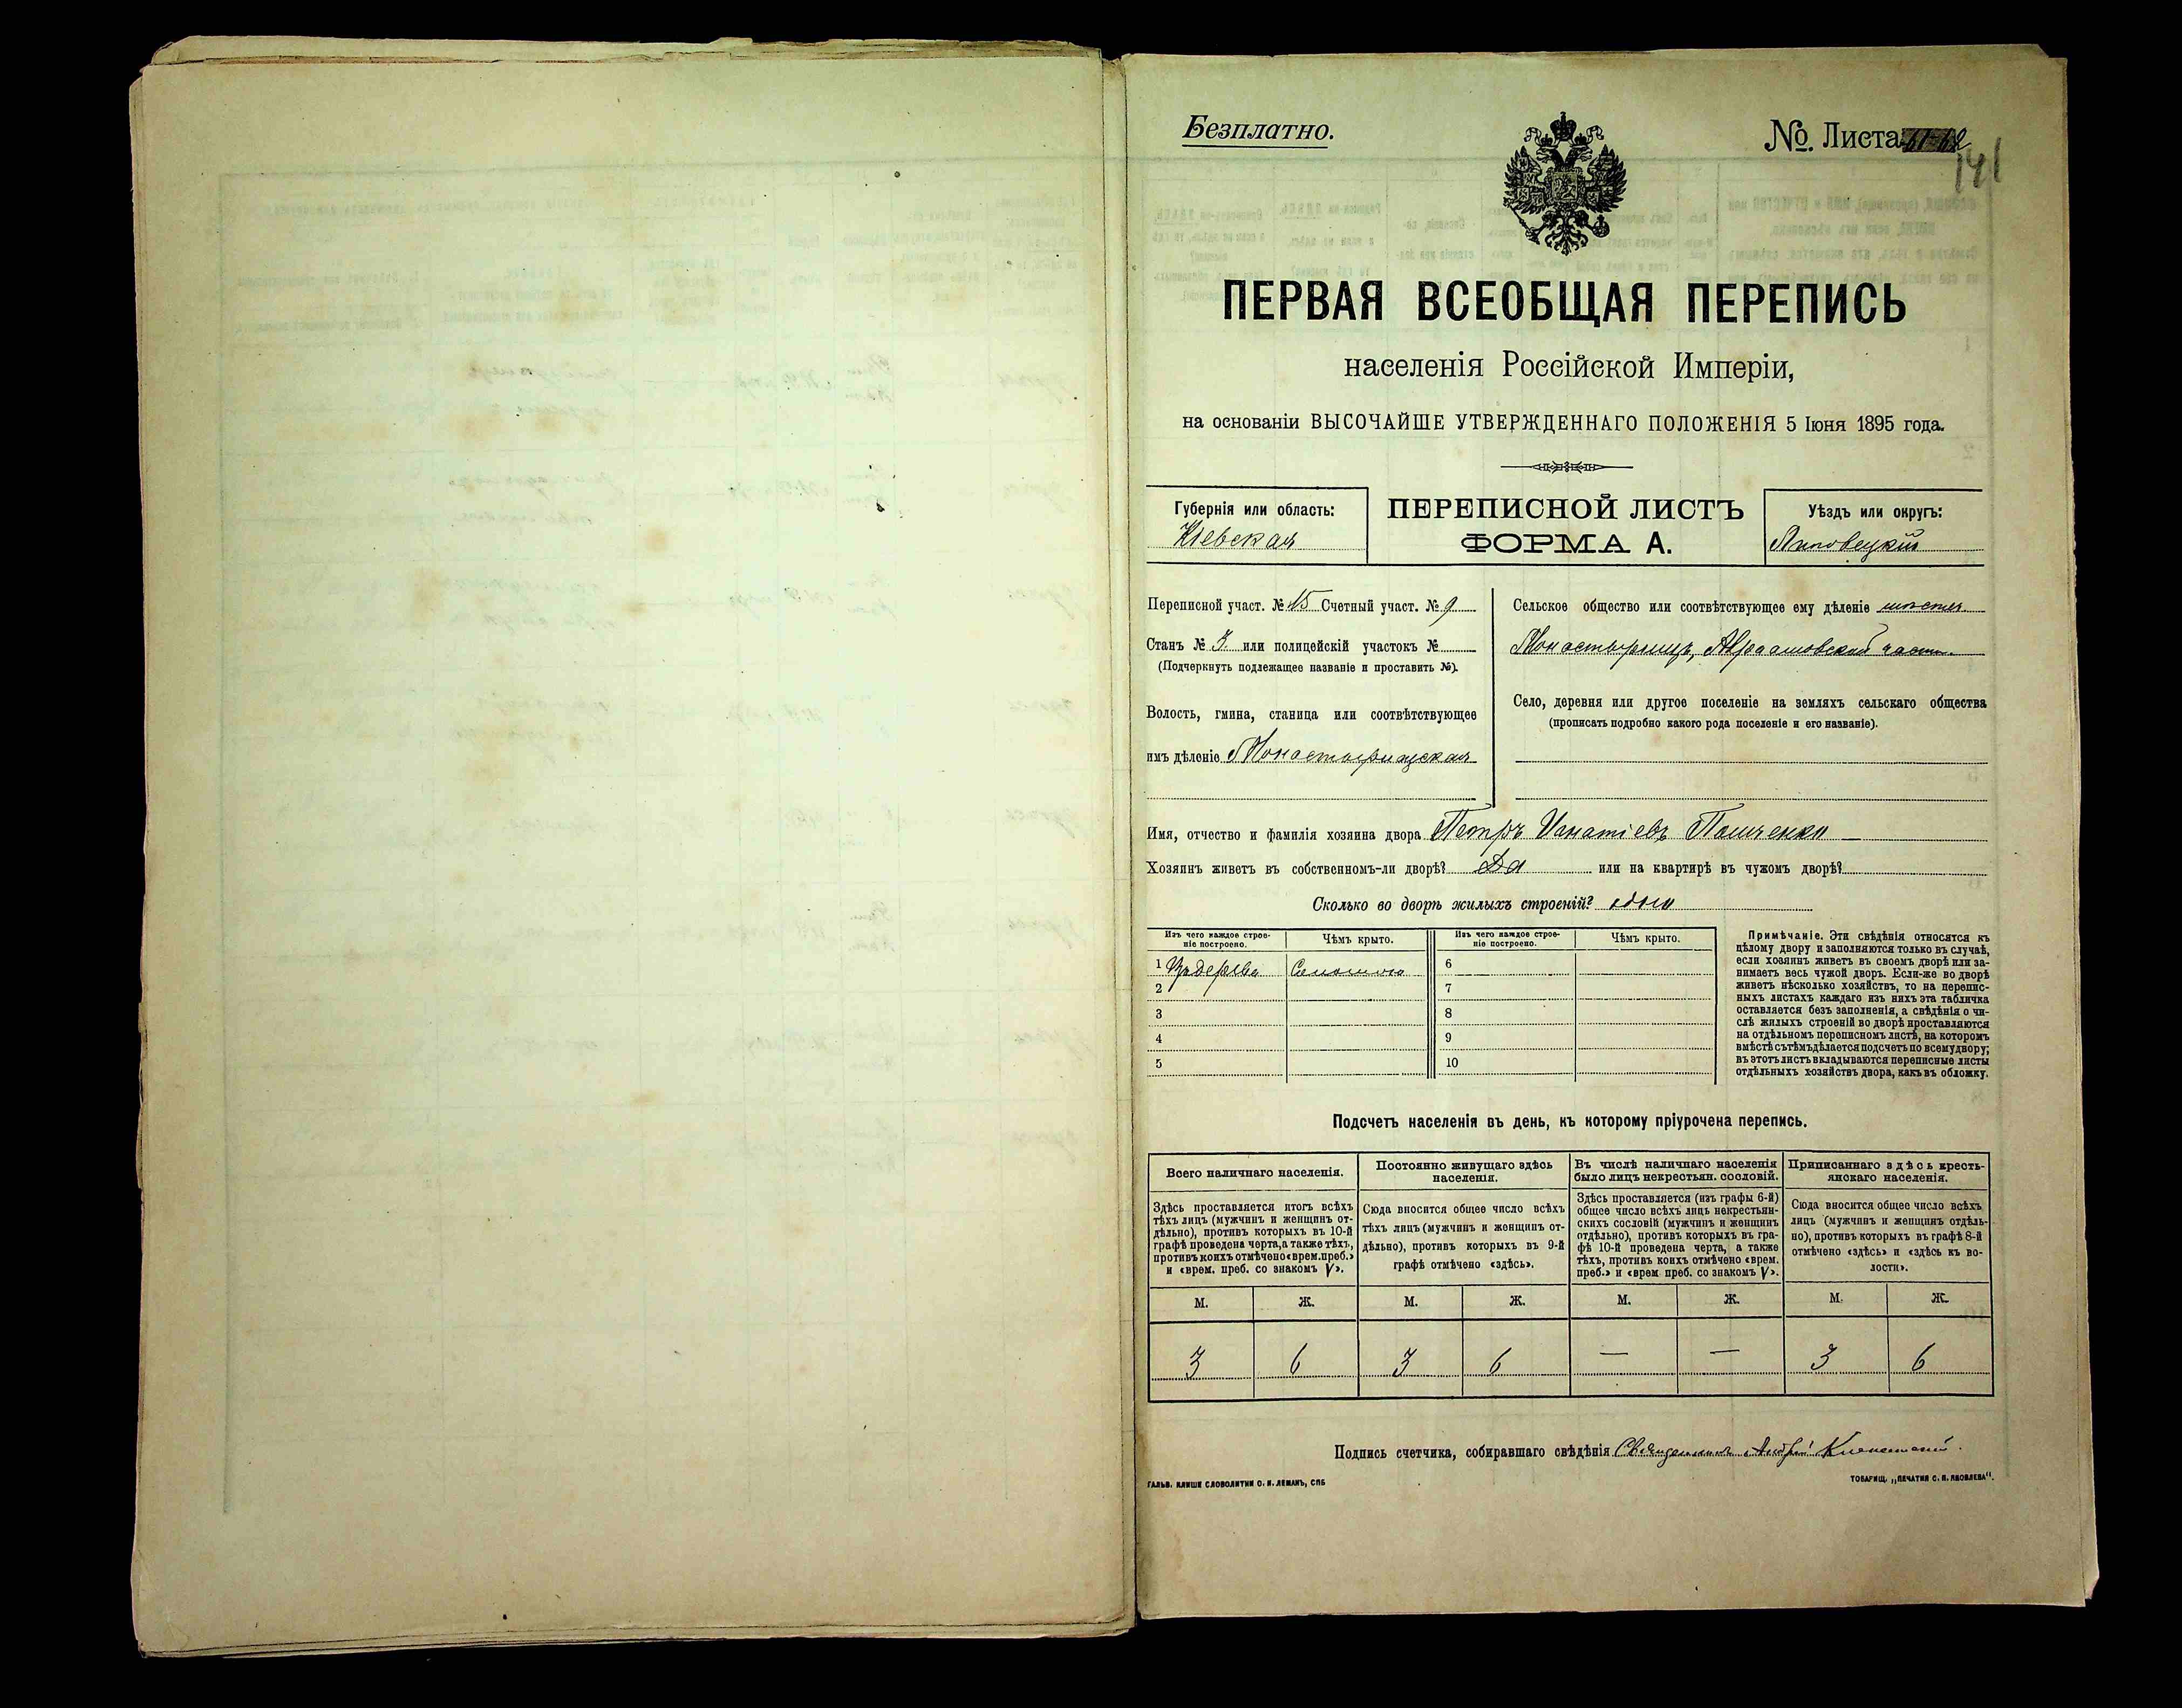 Безплатно.
№ Листа 61-62
141
ПЕРВАЯ ВСЕОБЩАЯ ПЕРЕПИСЬ
населенія Россійской Имперіи,
на основаніи ВЫСОЧАЙШЕ УТВЕРЖДЕННАГО ПОЛОЖЕНІЯ 5 Іюня 1895 года.
Губернія или область:
Кіевская
ПЕРЕПИСНОЙ ЛИСТЪ
ФОРМА А.
Уѣздъ или округъ:
Липовецкій
Переписной участ. № 15 Счетный участ. № 9
Станъ № 3 или полицейскій участокъ №
(Подчеркнуть подлежащее названіе и проставить №).
Волость, гмина, станица или соотвѣтствующее
имъ дѣленіе Монастырищская
Сельское общество или соотвѣтствующее ему дѣленіе
Монастырище, Аврамовской части
Село, деревня или другое поселеніе на земляхъ сельскаго общества
(прописать подробно какого рода поселеніе и его названіе).
Имя, отчество и фамилія хозяина двора Петръ Игнатіевъ
Хозяинъ живетъ въ собственномъ-ли дворѣ? Да или на квартирѣ въ чужомъ дворѣ?
Сколько во дворѣ жилыхъ строеній? одно
Изъ чего каждое строе-
ніе построено.
Чѣмъ крыто.
Изъ чего каждое строе-
ніе построено.
Чѣмъ крыто.
1 Изъ дерева Соломою
2
3
4
5
6
7
8
9
10
Примѣчаніе. Эти свѣдѣнія относятся къ
цѣлому двору и заполняются только въ случаѣ,
если хозяинъ живетъ въ своемъ дворѣ или за-
нимаетъ весь чужой дворъ. Если-же во дворѣ
живетъ нѣсколько хозяйствъ, то на перепис-
ныхъ листахъ каждаго изъ нихъ эта табличка
оставляется безъ заполненія, а свѣдѣнія о чи-
слѣ жилыхъ строеній во дворѣ проставляются
на отдѣльномъ переписномъ листѣ, на которомъ
вмѣстѣ съ тѣмъ дѣлается подсчетъ по всему двору;
въ этотъ листъ вкладываются переписные листы
отдѣльныхъ хозяйствъ двора, какъ въ обложку.
Подсчетъ населенія въ день, къ которому пріурочена перепись.
Всего наличнаго населенія.
Здѣсь проставляется итогъ всѣхъ
тѣхъ лицъ (мужчинъ и женщинъ от-
дѣльно), противъ которыхъ въ 10-й
графѣ проведена черта, а также тѣхъ,
противъ коихъ отмѣчено «врем. преб.»
и «врем. преб. со знакомъ V».
Постоянно живущаго здѣсь
населенія.
Сюда вносится общее число всѣхъ
тѣхъ лицъ (мужчинъ и женщинъ от-
дѣльно), противъ которыхъ въ 9-й
графѣ отмѣчено «здѣсь».
Въ числѣ наличнаго населенія
было лицъ некрестьян. сословій.
Здѣсь проставляется (изъ графы 6-й)
общее число всѣхъ лицъ некрестьян-
скихъ сословій (мужчинъ и женщинъ
отдѣльно), противъ которыхъ въ гра-
фѣ 10-й проведена черта, а также
тѣхъ, противъ коихъ отмѣчено «врем.
преб.» и «врем преб. со знакомъ V».
Приписаннаго здѣсь кресть-
янскаго населенія.
Сюда вносится общее число всѣхъ
лицъ (мужчинъ и женщинъ отдѣль-
но), противъ которыхъ въ графѣ 8-й
отмѣчено «здѣсь» и «здѣсь къ во-
лости».
М. Ж. М. Ж. М. Ж. М. Ж.
3 6 3 6 — — 3 6
Подпись счетчика, собиравшаго свѣдѣнія Священникъ Андрей
ГАЛЬВ. КЛИШЕ СЛОВОЛИТНИ О. И. ЛЕМАНЪ, СПБ
ТОВАРИЩ. „ПЕЧАТНЯ С. П. ЯКОВЛЕВА".